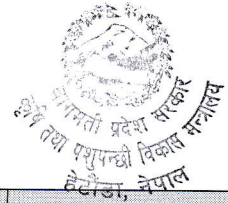 बागमती प्रदेश सरकार
कृषि तथा पशुपन्छी विकास मन्त्रालय
हेटौंडा, नेपाल